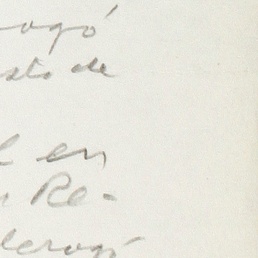 rogó
sto de
l en
n Re-
derogó